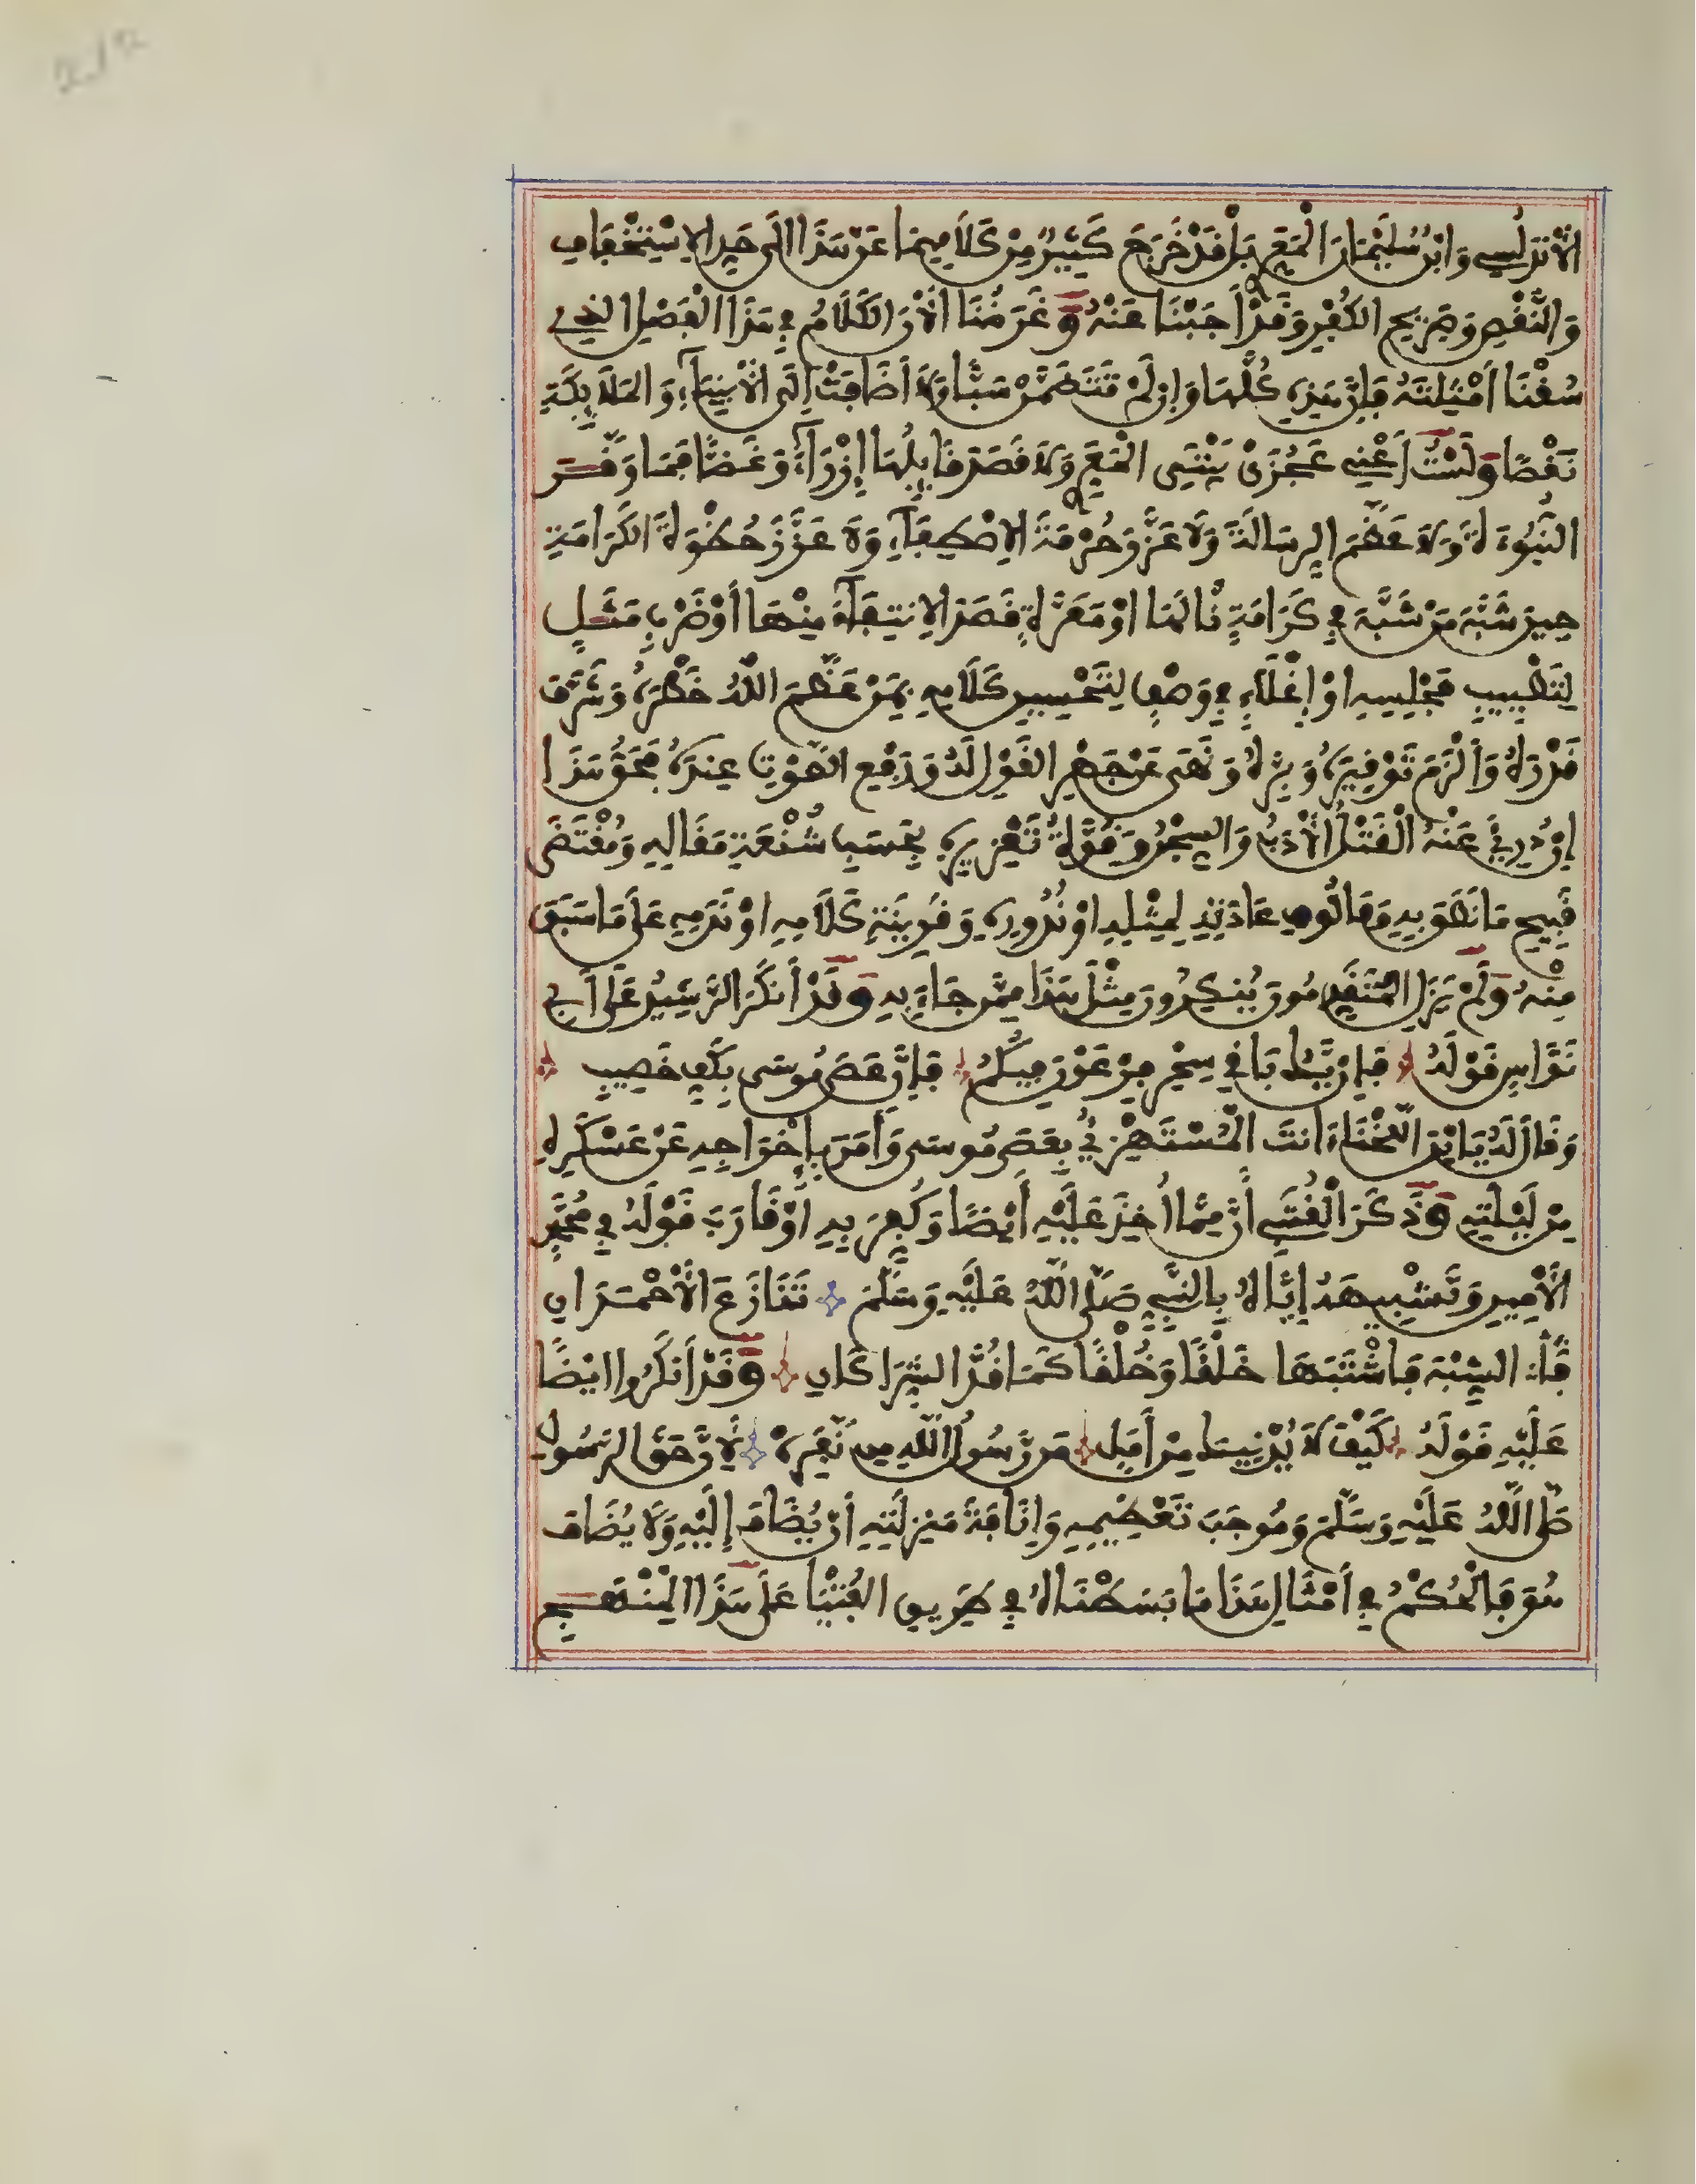 الْأَنْدَلُسِي وَابْن سُلَيْمَانَ الْمَعَرِّي بَلْ قَدْ خَرَجَ كَثِيرٌ مِنْ كَلَامِهِمَا عَنْ هَذَا إِلَى حَدِّ الِاسْتِخْفَافِ
وَالنَّقْصِ وَصَرِيحِ الْكُفْرِ وَقَدْ أَجَبْنَا عَنْهُ وَغَرَضُنَا الْآنَ الْكَلَامُ فِي هَذَا الْفَصْلِ الَّذِي
سُقْنَا أَمْثِلَتَهُ فَإِنَّ هَذِهِ كُلَّهَا وَإِنْ لَمْ تَتَضَمَّنْ سَبًّا وَلَا أَضَافَتْ إِلَى الْأَنْبِيَاءِ وَالْمَلَائِكَةِ
نَقْصًا وَلَسْتُ أَعْنِي عَجُزَيْ بَيْتَيِ الْمَعَرِّي وَلَا قَصَدَ قَائِلُهَا إِزْرَاءً وَغَضًّا فَمَا وَقَّرَ
النُّبُوءَةَ وَلَا عَظَّمَ الرِّسَالَةَ وَلَا عَزَّزَ حُرْمَةَ الِاصْطِفَاءِ وَلَا عَزَّزَ حُظْوَةَ الْكَرَامَةِ
حِينَ شَبَّهَ مَنْ شَبَّهَ فِي كَرَامَةٍ نَالَهَا أَوْ مَعَرَّةٍ قَصَدَ الِانْتِفَاءَ مِنْهَا أَوْ ضَرْبِ مَثَلٍ
لِتَطْيِيبِ مَجْلِسِهِ أَوْ إِغْلَاءٍ فِي وَصْفٍ لِتَحْسِينِ كَلَامِهِ بِمَنْ عَظَّمَ اللَّهُ خَطْرَهُ وَشَرَّفَ
قَدْرَهُ وَأَلْزَمَ تَوْقِيرَهُ وَبِرَّهُ وَنَهَى عَنْ جَهْرِ الْقَوْلِ لَهُ وَرَفْعِ الصَّوْتِ عِنْدَهُ فَحَقُّ هَذَا
إِنْ دُرِئَ عَنْهُ الْقَتْلُ الْأَدَبُ وَالسِّجْنُ وَقُوَّةُ تَعْزِيرِهِ بِحَسَبِ شُنْعَةِ مَقَالِهِ وَمُقْتَضَى
قَبِيحِ مَا نَطَقَ بِهِ وَمَأْلُوفِ عَادَتِهِ لِمِثْلِهِ أَوْ نُدُورِهِ وَقَرِينَةِ كَلَامِهِ أَوْ نَدَمِهِ عَلَى مَا سَبَقَ
مِنْهُ وَلَمْ يَزَلِ الْمُتَقَدِّمُونَ يُنْكِرُونَ مِثْلَ هَذَا مِمَّنْ جَاءَ بِهِ وَقَدْ أَنْكَرَ الرَّشِيدُ عَلَى أَبِي
نُوَّاسٍ قَوْلَهُ فَإِنْ يَكُ بَاقِي سِحْرِ فِرْعَوْنَ فِيكُمُ فَإِنَّ عَصَى مُوسَى بِكَفِّ خَصِيبِ
وَقَالَ لَهُ يَا ابْنَ اللَّخْنَاءِ أَنْتَ الْمُسْتَهْزِئُ بِعَصَى مُوسَى وَأَمَرَ بِإِخْرَاجِهِ عَنْ عَسْكَرِهِ
مِنْ لَيْلَتِهِ وَذَكَرَ الْقُتَبِي أَنَّ مِمَّا أُخِذَ عَلَيْهِ أَيْضًا وَكُفِّرَ بِهِ أَوْ قَارَبَ قَوْلَهُ فِي مُحَمَّدٍ
الْأَمِينِ وَتَشْبِيهَهُ إِيَّاهُ بِالنَّبِيِّ صَلَّى اللَّهُ عَلَيْهِ وَسَلَّمَ تَنَازَعَ الْأَحْمَدَانِ
الشِّبْهَ فَاشْتَبَهَا خَلْقًا وَخُلْقًا كَمَا قُدَّ الشِّرَاكَانِ وَقَدْ أَنْكَرُوا أَيْضًا
عَلَيْهِ قَوْلَهُ كَيْفَ لَا يُدْنِيكَ مِنْ أَمَلٍ مَنْ رَسُولُ اللَّهِ مِنْ نَفَرِهْ لِأَنَّ حَقَّ الرَّسُولِ
صَلَّى اللَّهُ عَلَيْهِ وَسَلَّمَ وَمُوجَبَ تَعْظِيمِهِ وَإِنَافَةَ مَنْزِلَتِهِ أَنْ يُضَافَ إِلَيْهِ وَلَا يُضَافَ
هُوَ فَالْحُكْمُ فِي أَمْثَالِ هَذَا مَا بَسَطْنَاهُ فِي طَرِيقِ الْفُتْيَا عَلَى هَذَا الْمَنْهَجِ